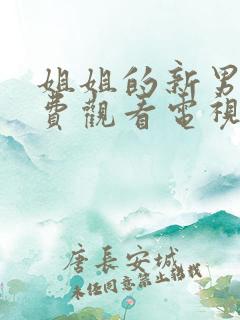 姐姐的新男
費觀看電視
唐長安城
未任同意禁止轉載